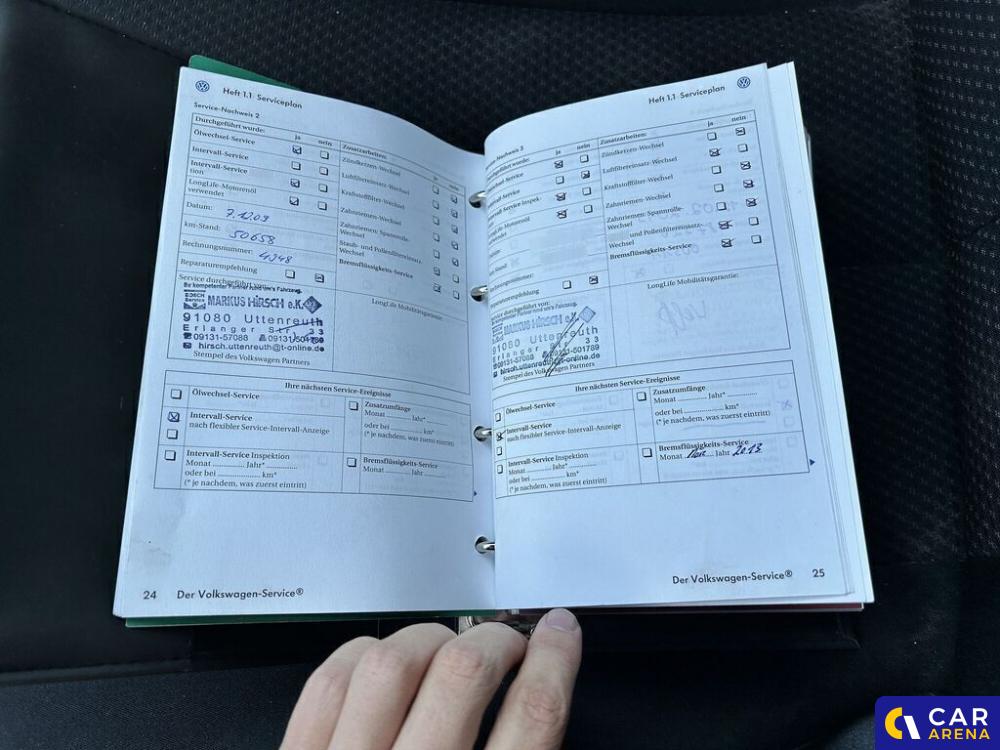 Heft 1.1 Serviceplan
Service-Nachweis 2
Durchgeführt wurde: ja nein
Ölwechsel-Service
Intervall-Service
Intervall-Service
tion
LongLife-Motorenöl
verwendet
Datum: 7.12.09
km-Stand: 50658
Rechnungsnummer: 4348
Reparaturempfehlung
Service durchgeführt von:
Ihr kompetenter Partner rund um's Fahrzeug.
BOSCH
Service
MARKUS HIRSCH e.K.
91080 Uttenreuth
Erlanger Str. 33
09131-57088 09131-501789
hirsch.uttenreuth@t-online.de
Stempel des Volkswagen Partners
Zusatzarbeiten: ja nein
Zündkerzen-Wechsel
Luftfiltereinsatz-Wechsel
Kraftstofffilter-Wechsel
Zahnriemen-Wechsel
Zahnriemen: Spannrolle-
Wechsel
Staub- und Pollenfiltereinsatz-
Wechsel
Bremsflüssigkeits-Service
LongLife Mobilitätsgarantie:
Ihre nächsten Service-Ereignisse
Ölwechsel-Service
Intervall-Service
nach flexibler Service-Intervall-Anzeige
Intervall-Service Inspektion
Monat ............ Jahr* ..............
oder bei .................. km*
(* je nachdem, was zuerst eintritt)
Zusatzumfänge
Monat ............ Jahr* ............
oder bei .................. km*
(* je nachdem, was zuerst eintritt)
Bremsflüssigkeits-Service
Monat ............ Jahr ............
24 Der Volkswagen-Service®
Heft 1.1 Serviceplan
-Nachweis 3
Durchgeführt wurde: ja nein
-Service
-Service
-Service Inspek-
LongLife-Motorenöl
verwendet
Stand:
Reparaturempfehlung
Service durchgeführt von:
Ihr kompetenter Partner rund um's Fahrzeug.
MARKUS HIRSCH e.K.
91080 Uttenreuth
Erlanger Str. 33
09131-57088 09131-501789
hirsch.uttenreuth@t-online.de
Stempel des Volkswagen Partners
Zusatzarbeiten: ja nein
Zündkerzen-Wechsel
Luftfiltereinsatz-Wechsel
Kraftstofffilter-Wechsel
Zahnriemen-Wechsel
Zahnriemen: Spannrolle-
Wechsel
und Pollenfiltereinsatz-
Wechsel
Bremsflüssigkeits-Service
LongLife Mobilitätsgarantie:
Ihre nächsten Service-Ereignisse
Ölwechsel-Service
Intervall-Service
nach flexibler Service-Intervall-Anzeige
Intervall-Service Inspektion
Monat ............ Jahr* ..............
oder bei .................. km*
(* je nachdem, was zuerst eintritt)
Zusatzumfänge
Monat ............ Jahr* ............
oder bei .................. km*
(* je nachdem, was zuerst eintritt)
Bremsflüssigkeits-Service
Monat Jahr 2013
Der Volkswagen-Service® 25
CAR
ARENA